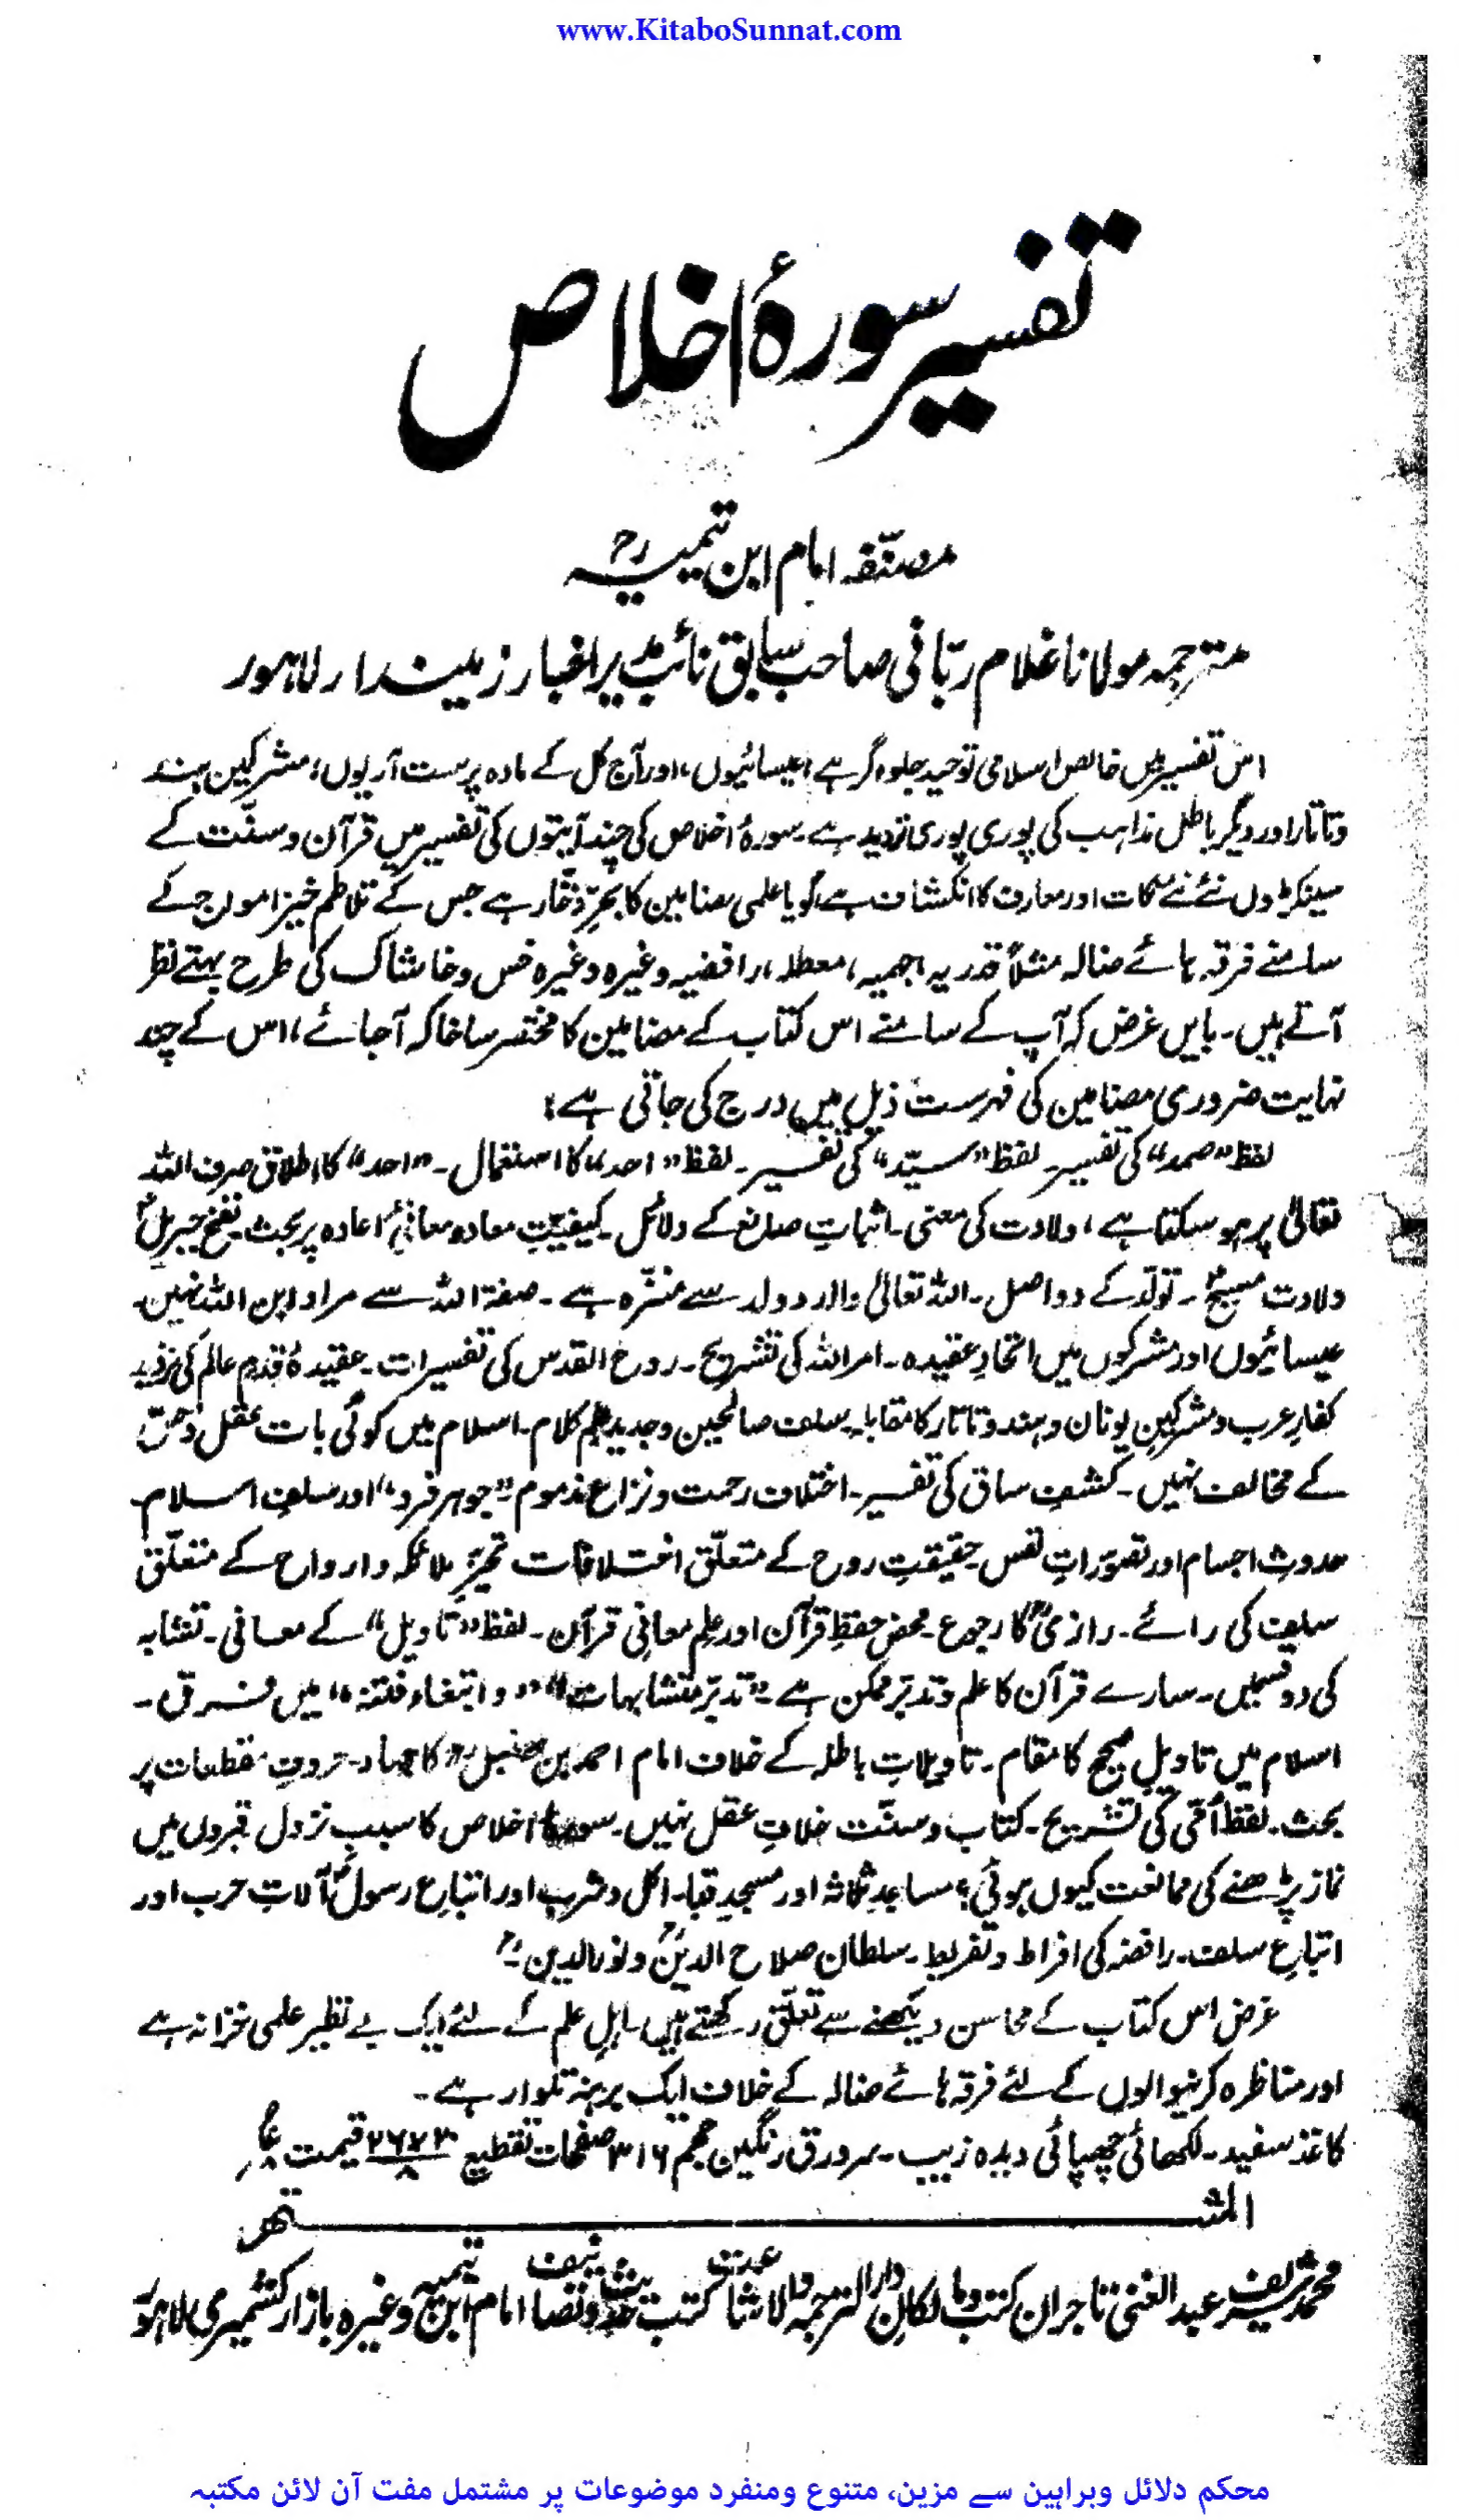 www.KitaboSunnat.com
تفسیر سورۂ اخلاص
مصنّفہ امام ابن تیمیہؒ
مترجمہ مولانا غلام ربّانی صاحب سابق نائب مدیر اخبار زمیندار لاہور
اس تفسیر میں خالص اسلامی توحید جلوہ گر ہے، عیسائیوں، اور آج کل کے مادہ پرست آریوں، مشرکین ہند
وتاتار اور دیگر باطل مذاہب کی پوری پوری تردید ہے۔ سورۂ اخلاص کی چند آیتوں کی تفسیر میں قرآن وسنّت کے
سینکڑوں نئے نئے نکات اور معارف کا انکشاف ہے، گویا علمی مضامین کا بحرِ ذخّار ہے جس کے تلاطم خیز امواج کے
سامنے فرقہ ہائے ضالہ مثلاً قدریہ، جہمیہ، معطلہ، رافضیہ وغیرہ وغیرہ خس وخاشاک کی طرح بہتے نظر
آتے ہیں۔ بایں غرض کہ آپ کے سامنے اس کتاب کے مضامین کا مختصر سا خاکہ آجائے، اس کے چند
نہایت ضروری مضامین کی فہرست ذیل میں درج کی جاتی ہے:
لفظ "صمد" کی تفسیر۔ لفظ "سیّد" کی تفسیر۔ لفظ "احد" کا استعمال۔ "احد" کا اطلاق صرف اللہ
تعالیٰ پر ہو سکتا ہے، ولادت کی معنی۔ اثباتِ صانع کے دلائل۔ کیفیّتِ معاد ومعانیٔ اعادہ پر بحث نفخِ جبریلؑ
ولادت مسیحؑ۔ تولّد کے دو اصل۔ اللہ تعالیٰ والد وولد سے منزّہ ہے۔ صفۃ اللہ سے مراد ابن اللہ نہیں۔
عیسائیوں اور مشرکوں میں اتحادِ عقیدہ۔ امر اللہ کی تشریح۔ روح القدس کی تفسیرات۔ عقیدۂ قدمِ عالم کی تردید
کفارِ عرب ومشرکینِ یونان وہند وتاتار کا مقابلہ۔ سلف صالحین وجدید علم کلام۔ اسلام میں کوئی بات عقل وحق
کے مخالف نہیں۔ کشفِ ساق کی تفسیر۔ اختلاف رحمت ونزاع مذموم۔ "جوہر فرد" اور سلفِ اسلام
حدوثِ اجسام اور تصوّراتِ نفس حقیقتِ روح کے متعلّق اختلافات تحیّزِ ملائکہ وارواح کے متعلّق
سلف کی رائے۔ رازیؒ کا رجوع۔ محض حفظِ قرآن اور علمِ معانیٔ قرآن۔ لفظ "تاویل" کے معانی۔ تشابہ
کی دو قسمیں۔ سارے قرآن کا علم وتدبّر ممکن ہے۔ "تدبّر متشابہات" "وابتغاء فتنہ" میں فرق۔
اسلام میں تاویلِ صحیح کا مقام۔ تاویلاتِ باطلہ کے خلاف امام احمد بن حنبلؒ کا جہاد۔ حروفِ مقطعات پر
بحث۔ لفظ اُمّی کی تشریح۔ کتاب وسنّت خلافِ عقل نہیں۔ سورۂ اخلاص کا سببِ نزول قبروں میں
نماز پڑھنے کی ممانعت کیوں ہوئی؟ مساجدِ ثلاثہ اور مسجدِ قبا۔ اکل وشرب اور اتباعِ رسولؐ آلاتِ حرب اور
اتباعِ سلف۔ رافضہ کی افراط وتفریط۔ سلطان صلاح الدینؒ ونور الدینؒ۔
غرض اس کتاب کے محاسن دیکھنے سے تعلّق رکھتے ہیں۔ اہلِ علم کے لئے ایک بے نظیر علمی خزانہ ہے
اور مناظرہ کرنیوالوں کے لئے فرقہ ہائے ضالہ کے خلاف ایک برہنہ تلوار ہے۔
کاغذ سفید۔ لکھائی چھپائی دیدہ زیب۔ سرورق رنگین حجم ۳۱۶ صفحات تقطیع قیمت
المشتھر
محمد شریف عبدالغنی تاجران کتب ومالکان دارالترجمہ والاشاعت کتب تصانیف امام ابن تیمیہ وغیرہ بازار کشمیری لاہور
محکم دلائل وبراہین سے مزین، متنوع ومنفرد موضوعات پر مشتمل مفت آن لائن مکتبہ